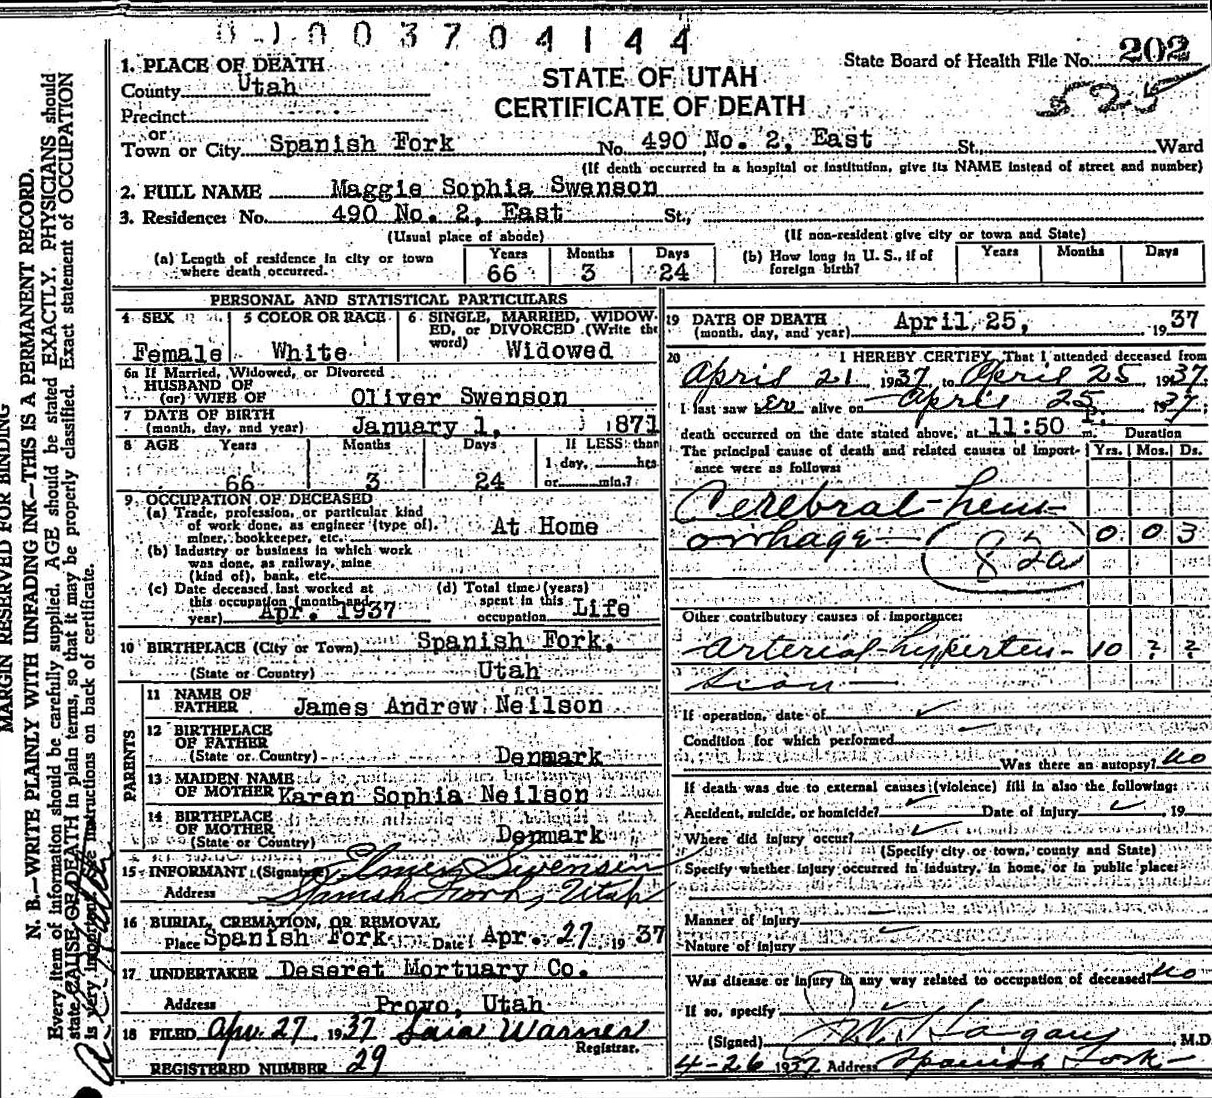 01003704144
State Board of Health File No. 202
525
STATE OF UTAH
CERTIFICATE OF DEATH
1. PLACE OF DEATH
County Utah
Precinct
or
Town or City Spanish Fork No. 490 No. 2, East St., Ward
(If death occurred in a hospital or institution, give its NAME instead of street and number)
2. FULL NAME Maggie Sophia Swenson
3. Residence: No. 490 No. 2, East St.,
(Usual place of abode) (If non-resident give city or town and State)
(a) Length of residence in city or town where death occurred. Years 66 Months 3 Days 24
(b) How long in U. S., if of foreign birth? Years Months Days
PERSONAL AND STATISTICAL PARTICULARS
4 SEX Female
5 COLOR OR RACE White
6 SINGLE, MARRIED, WIDOWED, or DIVORCED (Write the word) Widowed
6a If Married, Widowed, or Divorced
HUSBAND OF
(or) WIFE OF Oliver Swenson
7 DATE OF BIRTH
(month, day, and year) January 1, 1871
8 AGE Years 66 Months 3 Days 24 If LESS than 1 day, hrs. or min.?
9 OCCUPATION OF DECEASED
(a) Trade, profession, or particular kind of work done, as engineer (type of), miner, bookkeeper, etc. At Home
(b) Industry or business in which work was done, as railway, mine (kind of), bank, etc.
(c) Date deceased last worked at this occupation (month and year) Apr. 1937
(d) Total time (years) spent in this occupation Life
10 BIRTHPLACE (City or Town) Spanish Fork,
(State or Country) Utah
PARENTS
11 NAME OF FATHER James Andrew Neilson
12 BIRTHPLACE OF FATHER
(State or Country) Denmark
13 MAIDEN NAME OF MOTHER Karen Sophia Neilson
14 BIRTHPLACE OF MOTHER
(State or Country) Denmark
15 INFORMANT (Signature) Elmer Swenson
Address Spanish Fork, Utah
16 BURIAL, CREMATION, OR REMOVAL
Place Spanish Fork Date Apr. 27 1937
17 UNDERTAKER Deseret Mortuary Co.
Address Provo, Utah
18 FILED Apr. 27 1937 Sara Warner
Registrar.
REGISTERED NUMBER 29
19 DATE OF DEATH
(month, day, and year) April 25, 1937
20 I HEREBY CERTIFY, That I attended deceased from
April 21 1937, to April 25 1937;
I last saw her alive on April 25 1937
death occurred on the date stated above, at 11:50 P. m. Duration
The principal cause of death and related causes of importance were as follows: Yrs. Mos. Ds.
Cerebral hem-
orrhage 0 0 3
82a
Other contributory causes of importance:
Arterial hyperten- 10 ? ?
sion
If operation, date of
Condition for which performed
Was there an autopsy? No
If death was due to external causes (violence) fill in also the following:
Accident, suicide, or homicide? Date of injury , 19
Where did injury occur?
(Specify city or town, county and State)
Specify whether injury occurred in industry, in home, or in public place:
Manner of injury
Nature of injury
Was disease or injury in any way related to occupation of deceased? No
If so, specify
(Signed) Hagan M.D.
4-26 1937 Address Spanish Fork
MARGIN RESERVED FOR BINDING
N. B.—WRITE PLAINLY WITH UNFADING INK—THIS IS A PERMANENT RECORD.
Every item of information should be carefully supplied. AGE should be stated EXACTLY. PHYSICIANS should
state CAUSE OF DEATH in plain terms, so that it may be properly classified. Exact statement of OCCUPATION
is very important. See instructions on back of certificate.